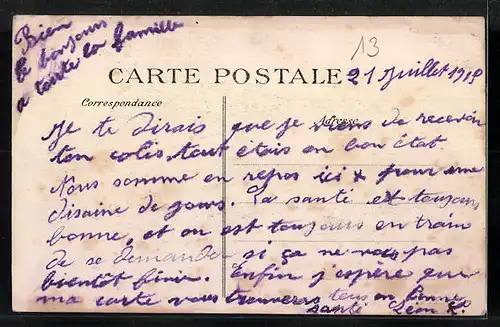 Bien
le bonjour
a toute la famille
13
CARTE POSTALE
21 Juillet 1915
Correspondance
Adresse
Je te dirais que je viens de recevoir
ton colis tout etais en bon état.
Nous somme en repos ici pour une
disaine de jours. La santé est toujours
bonne, et on est toujours en train
de se demander si ça ne vas pas
bientôt finir. Enfin j'espère que
ma carte vous trouveras tous en bonne
santé Léon R.